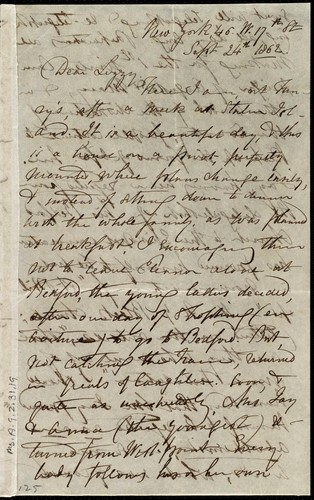 New York 46 W. 17th St
Sept 24th 1862.
Dear Lizzy
Here I am, at Fan-
ny's, after a week at Staten Isl-
and. It is a beautiful day, & this
is a house on a perfectly
mounted, where plans change easily,
& instead of sitting down to dinner
with the whole family, as was planned
at breakfast, I encouraging them
not to leave Eleanor alone at
Bedford, the young ladies decided,
after our day of shopping (ex-
to go to Bedford. But,
not catching the train, returned
in peals of laughter. Soon, &
quite as unexpectedly, Mrs. Jay
& Anna (the youngest) re-
turned from West Point. Every
body follows his or her own
Ms. A. 9. 2. 31. 15
125